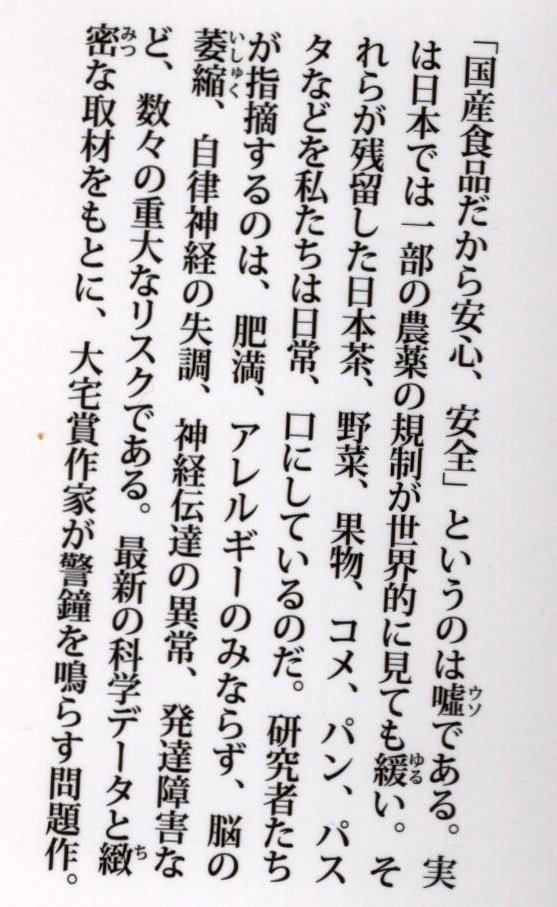 「国産食品だから安心、安全」というのは嘘である。実
は日本では一部の農薬の規制が世界的に見ても緩い。そ
れらが残留した日本茶、野菜、果物、コメ、パン、パス
タなどを私たちは日常、口にしているのだ。研究者たち
が指摘するのは、肥満、アレルギーのみならず、脳の
萎縮、自律神経の失調、神経伝達の異常、発達障害な
ど、数々の重大なリスクである。最新の科学データと緻
密な取材をもとに、大宅賞作家が警鐘を鳴らす問題作。